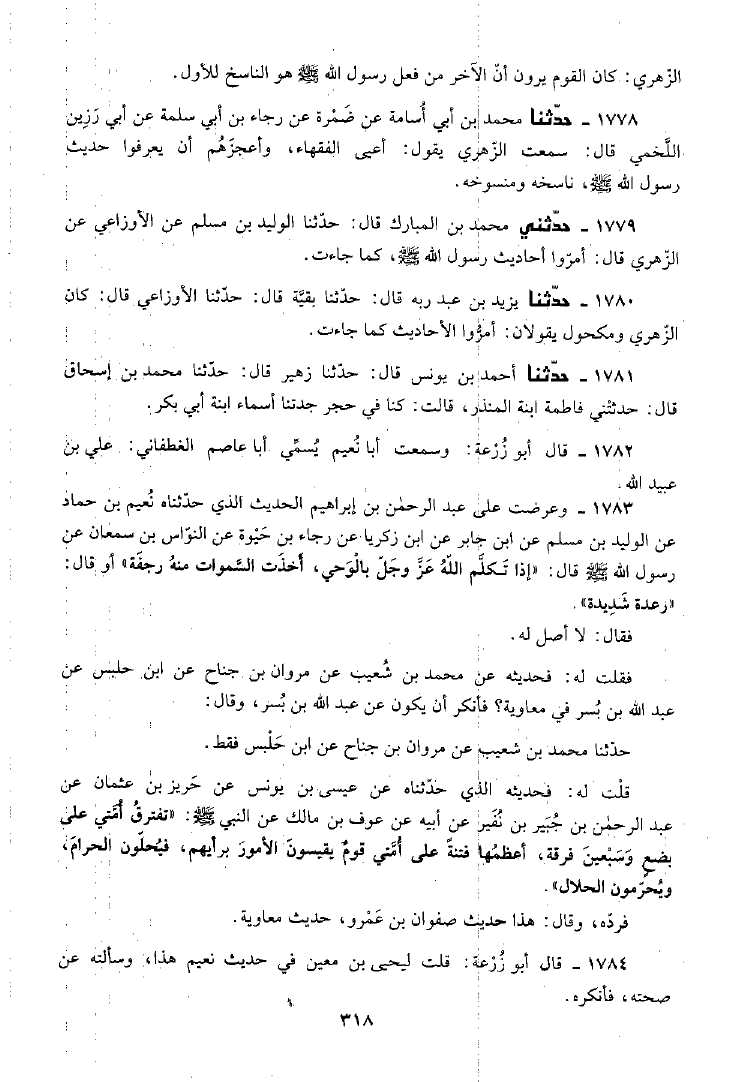 الزّهري: كان القوم يرون أنّ الآخر من فعل رسول الله ﷺ هو الناسخ للأول.
١٧٧٨ ـ حدّثنا محمد بن أبي أُسامة عن ضَمْرة عن رجاء بن أبي سلمة عن أبي رَزِين
اللَّخمي قال: سمعت الزّهري يقول: أعيى الفقهاء، وأعجزَهُم أن يعرفوا حديث
رسول الله ﷺ، ناسخه ومنسوخه.
١٧٧٩ ـ حدّثني محمد بن المبارك قال: حدّثنا الوليد بن مسلم عن الأوزاعي عن
الزّهري قال: أمرّوا أحاديث رسول الله ﷺ، كما جاءت.
١٧٨٠ ـ حدّثنا يزيد بن عبد ربه قال: حدّثنا بقيَّة قال: حدّثنا الأوزاعي قال: كان
الزّهري ومكحول يقولان: أمرّوا الأحاديث كما جاءت.
١٧٨١ ـ حدّثنا أحمد بن يونس قال: حدّثنا زهير قال: حدّثنا محمد بن إسحاق
قال: حدثتني فاطمة ابنة المنذر، قالت: كنا في حجر جدتنا أسماء ابنة أبي بكر.
١٧٨٢ ـ قال أبو زُرْعة: وسمعت أبا نُعيم يُسمِّي أبا عاصم الغطفاني: علي بن
عبيد الله.
١٧٨٣ ـ وعرضت على عبد الرحمٰن بن إبراهيم الحديث الذي حدّثناه نُعيم بن حماد
عن الوليد بن مسلم عن ابن جابر عن ابن زكريا عن رجاء بن حَيْوة عن النوّاس بن سمعان عن
رسول الله ﷺ قال: «إذا تَكلَّم اللَّهُ عَزَّ وجَلّ بالْوَحي، أخذَت السَّموات منهُ رجفَة» أو قال:
«رَعدة شَدِيدة».
فقال: لا أصل له.
فقلت له: فحديثه عن محمد بن شُعيب عن مروان بن جناح عن ابن حلبس عن
عبد الله بن بُسر في معاوية؟ فأنكر أن يكون عن عبد الله بن بُسر، وقال:
حدّثنا محمد بن شعيب عن مروان بن جناح عن ابن حَلْبس فقط.
قلْت له: فحديثه الذي حدّثناه عن عيسى بن يونس عن حَريز بن عثمان عن
عبد الرحمٰن بن جُبَير بن نُفَير عن أبيه عن عوف بن مالك عن النبي ﷺ: «تفترقُ أُمَّتي على
بضعٍ وَسَبْعينَ فرقة، أعظمُها فتنةً على أُمَّتي قومٌ يقيسونَ الأمورَ برأيهم، فيُحلّون الحرامَ،
ويُحرّمون الحلال».
فردّه، وقال: هذا حديث صفوان بن عَمْرو، حديث معاوية.
١٧٨٤ ـ قال أبو زُرْعة: قلت ليحيى بن معين في حديث نعيم هذا، وسألته عن
صحته، فأنكره.
٣١٨